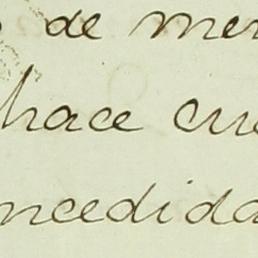 de mer
hace cue
ncedida